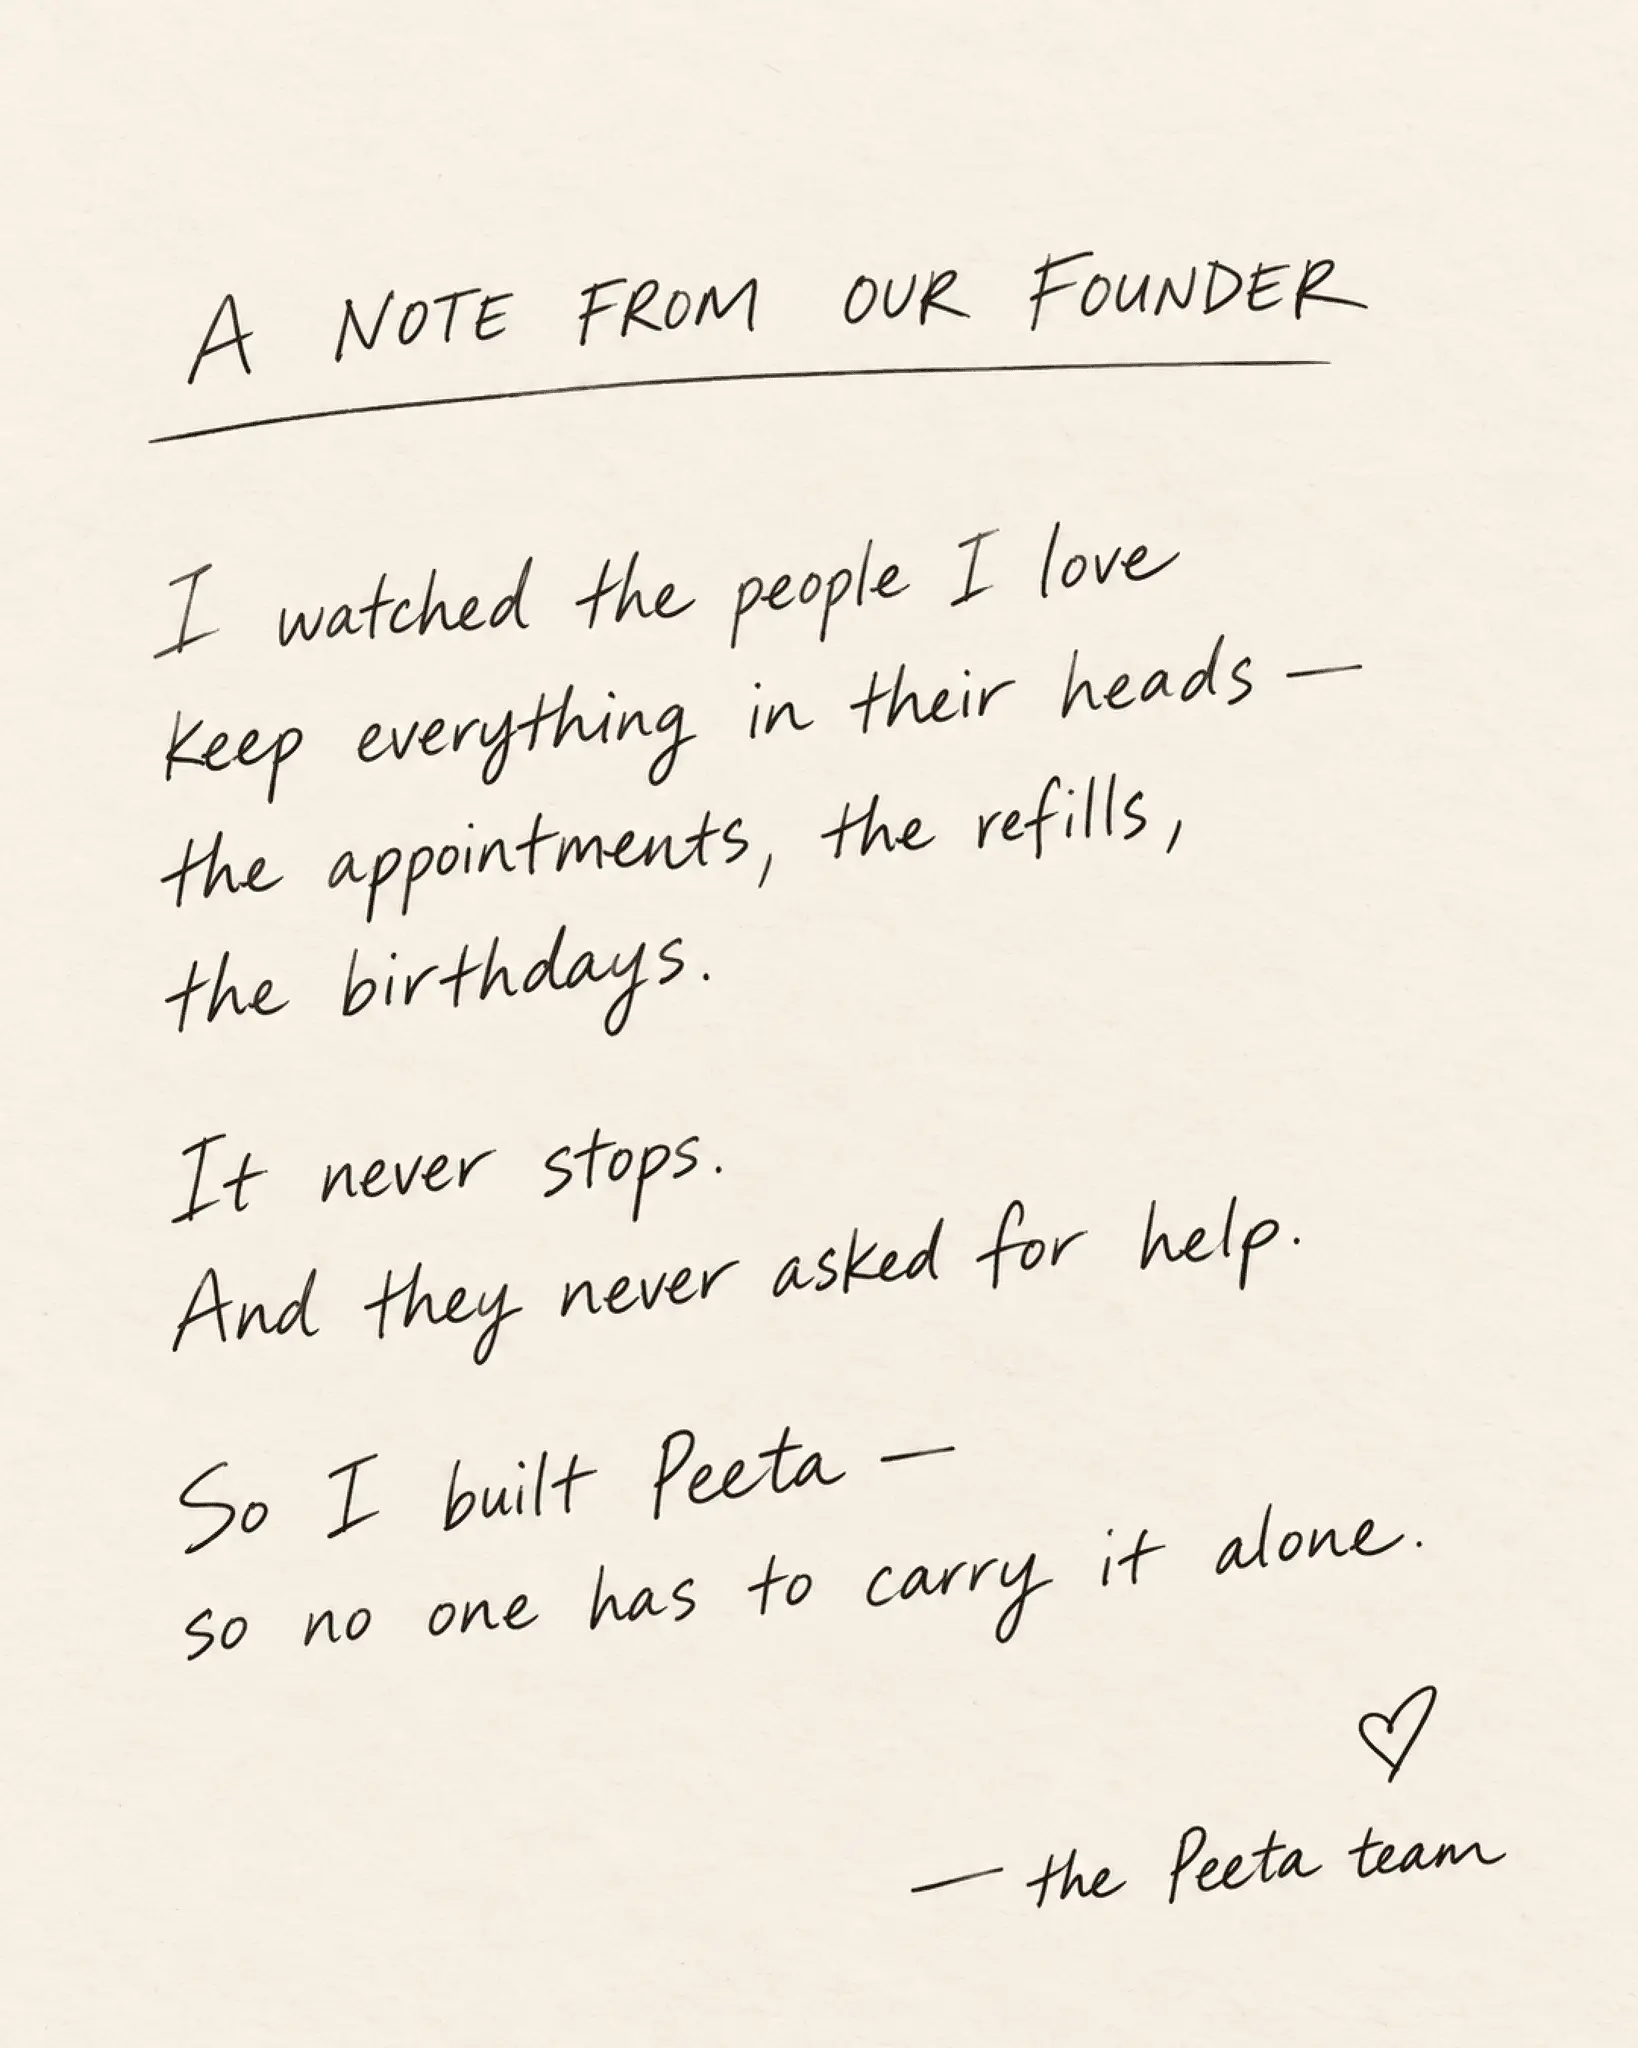 A NOTE FROM OUR FOUNDER
I watched the people I love
keep everything in their heads —
the appointments, the refills,
the birthdays.
It never stops.
And they never asked for help.
So I built Peeta —
so no one has to carry it alone.
— the Peeta team